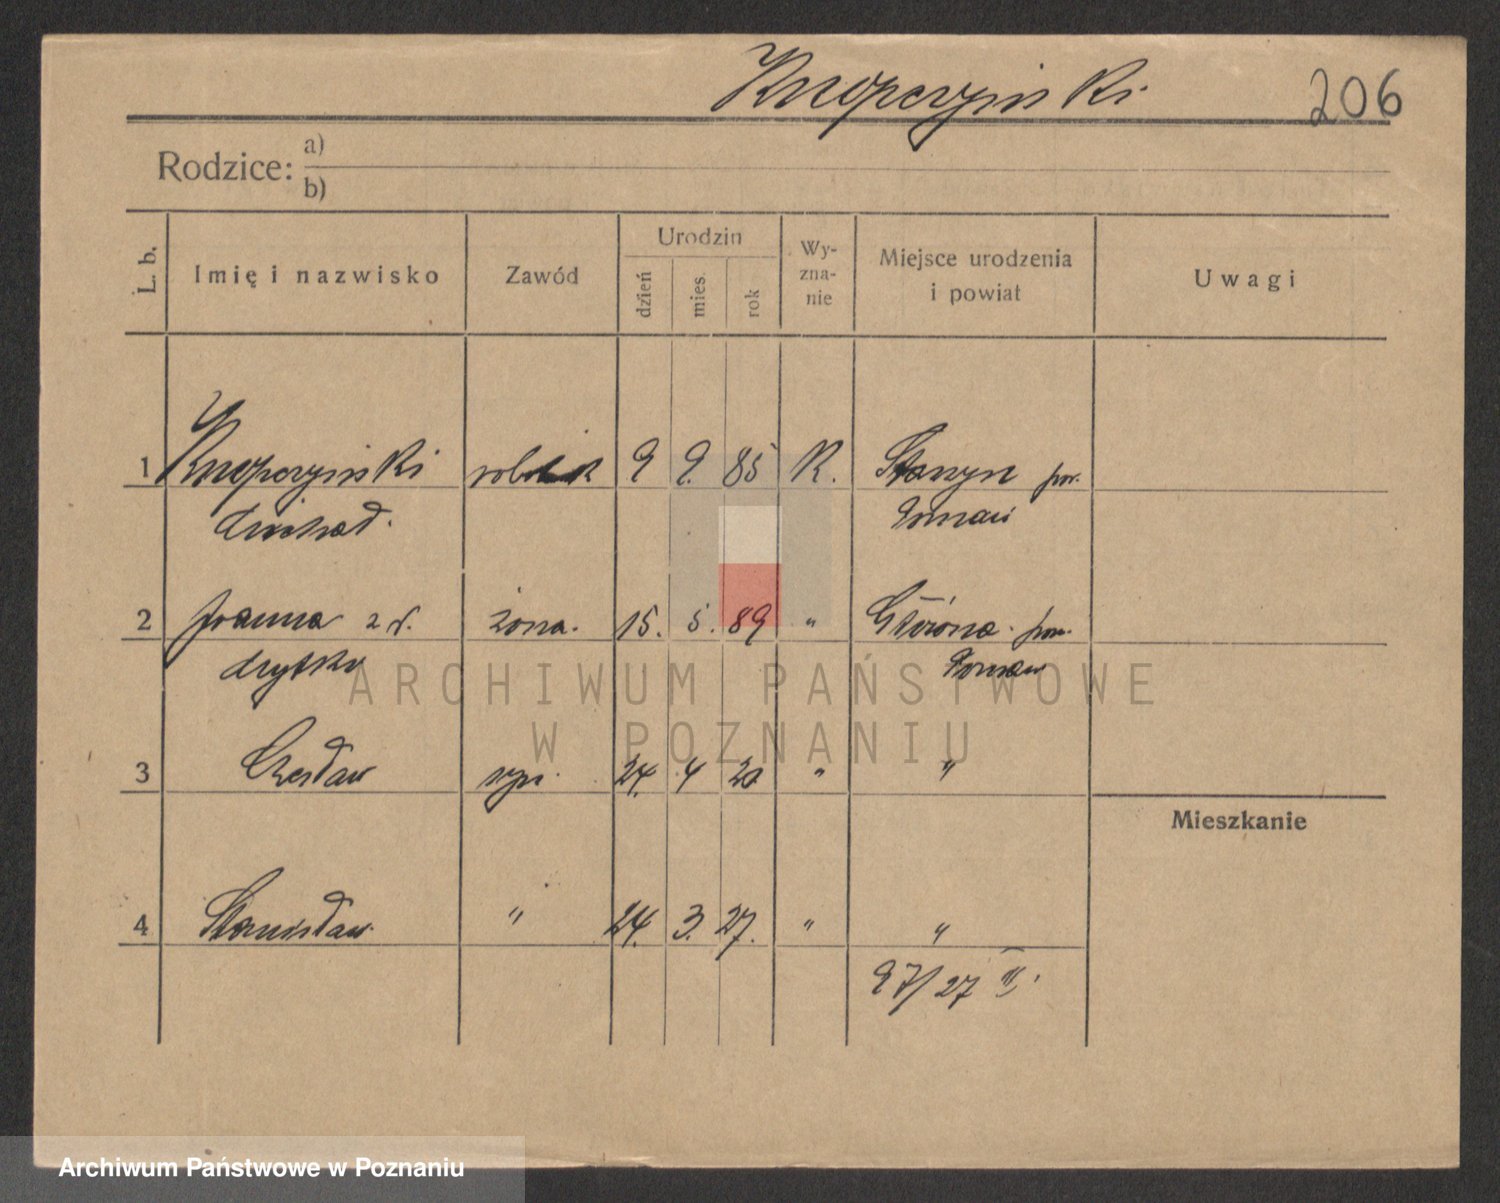 Knopczyński 206
Rodzice: a)
b)
L. b. Imię i nazwisko Zawód Urodzin dzień mies. rok Wy-zna-nie Miejsce urodzenia i powiat Uwagi
1 Knopczyński 9 9. 85 R. pow.
Michał. Poznań
2 Joanna z d. żona. 15. 5. 89 " Główna pow.
Poznań
ARCHIWUM PAŃSTWOWE
W POZNANIU
3 Czesław syn 24. 4 20 " "
Mieszkanie
4 Stanisław " 24. 3. 27. " "
97/27 III.
Archiwum Państwowe w Poznaniu